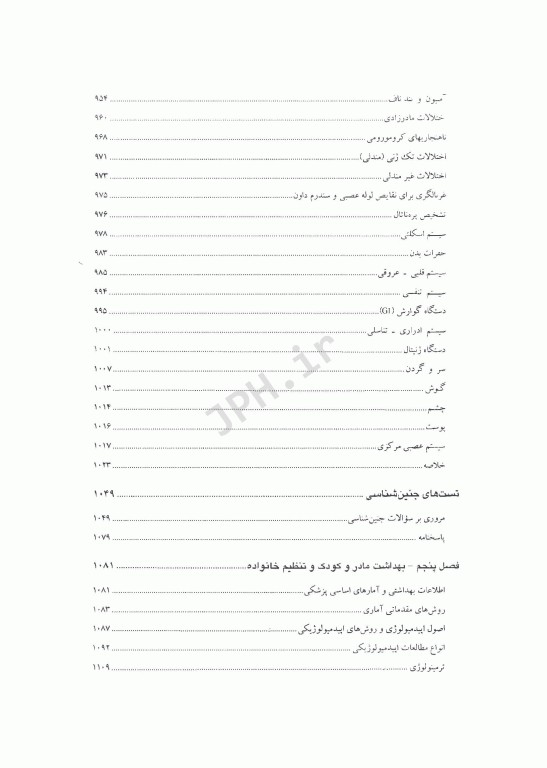 آمنیون و بند ناف ........ ۹۵۴
اختلالات مادرزادی ........ ۹۶۰
ناهنجاریهای کروموزومی ........ ۹۶۸
اختلالات تک ژنی (مندلی) ........ ۹۷۱
اختلالات غیر مندلی ........ ۹۷۳
غربالگری برای نقایص لوله عصبی و سندرم داون ........ ۹۷۵
تشخیص پره‌ناتال ........ ۹۷۶
سیستم اسکلتی ........ ۹۷۸
حفرات بدن ........ ۹۸۳
سیستم قلبی - عروقی ........ ۹۸۵
سیستم تنفسی ........ ۹۹۴
دستگاه گوارش (GI) ........ ۹۹۵
سیستم ادراری - تناسلی ........ ۱۰۰۰
دستگاه ژنیتال ........ ۱۰۰۱
سر و گردن ........ ۱۰۰۷
گوش ........ ۱۰۱۳
چشم ........ ۱۰۱۴
پوست ........ ۱۰۱۶
سیستم عصبی مرکزی ........ ۱۰۱۷
خلاصه ........ ۱۰۲۳
تست‌های جنین‌شناسی ........ ۱۰۴۹
مروری بر سؤالات جنین‌شناسی ........ ۱۰۴۹
پاسخنامه ........ ۱۰۷۹
فصل پنجم - بهداشت مادر و کودک و تنظیم خانواده ........ ۱۰۸۱
اطلاعات بهداشتی و آمارهای اساسی پزشکی ........ ۱۰۸۱
روش‌های مقدماتی آماری ........ ۱۰۸۳
اصول اپیدمیولوژی و روش‌های اپیدمیولوژیکی ........ ۱۰۸۷
انواع مطالعات اپیدمیولوژیکی ........ ۱۰۹۲
ترمینولوژی ........ ۱۱۰۹
JPH.ir